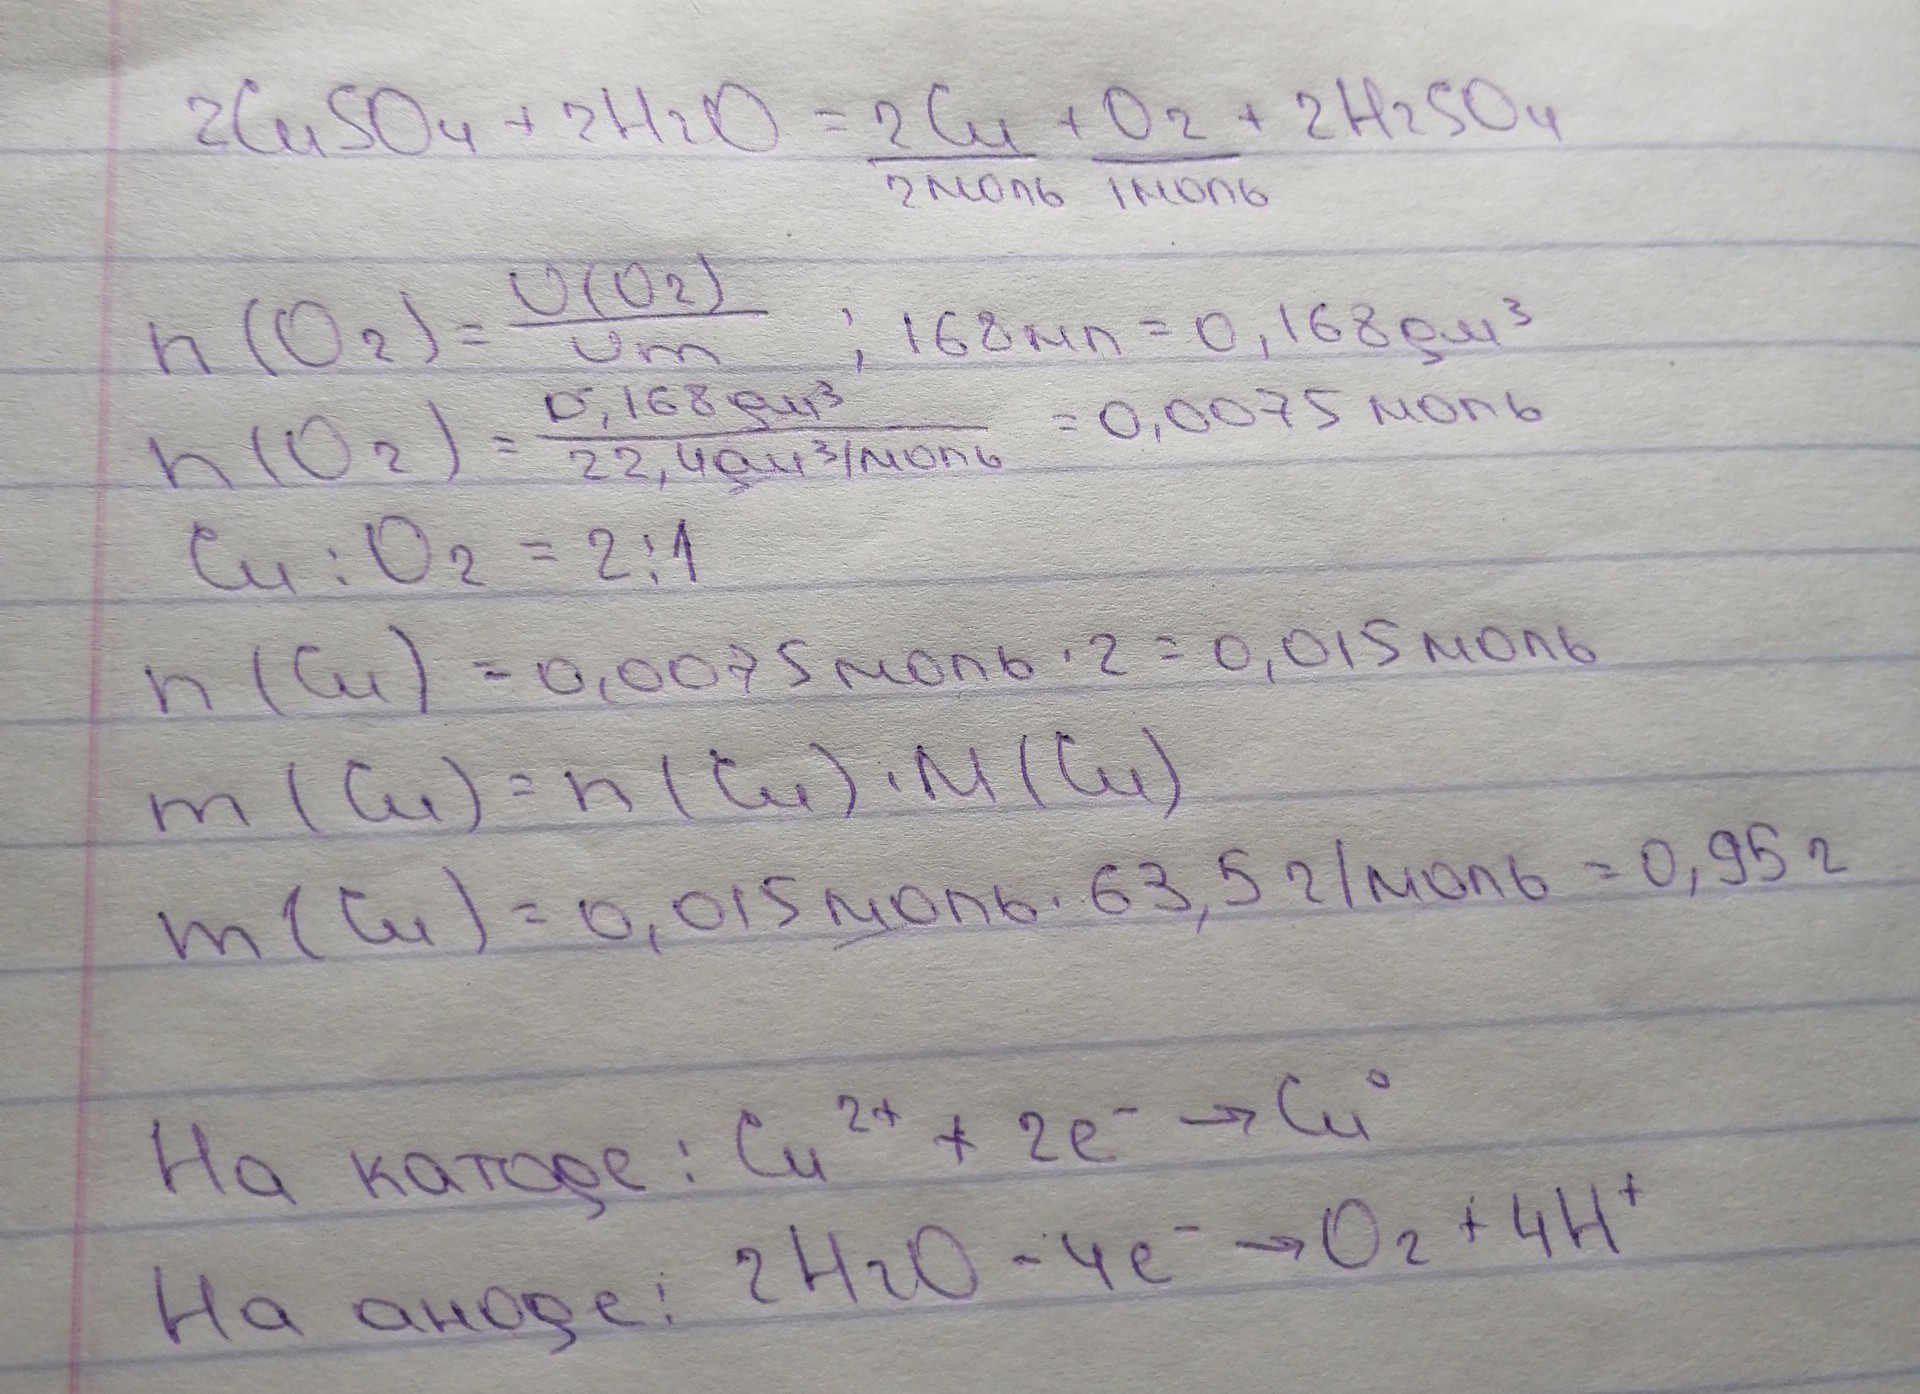 2CuSO4 + 2H2O = 2Cu + O2 + 2H2SO4
2моль 1моль
n(O2) = V(O2) / Vm ; 168мл = 0,168дм³
n(O2) = 0,168дм³ / 22,4дм³/моль = 0,0075моль
Cu : O2 = 2:1
n(Cu) = 0,0075моль · 2 = 0,015моль
m(Cu) = n(Cu) · M(Cu)
m(Cu) = 0,015моль · 63,5г/моль = 0,95г
На катоде: Cu²⁺ + 2e⁻ → Cu⁰
На аноде: 2H2O - 4e⁻ → O2 + 4H⁺